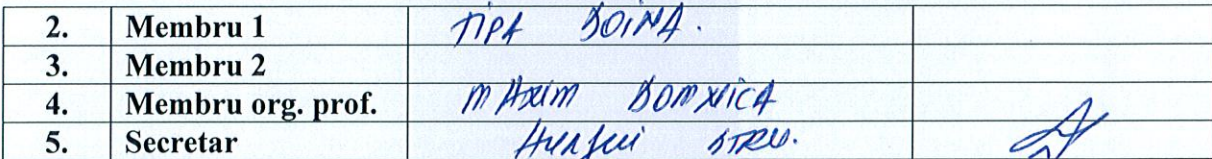 2. Membru 1 TIPA DOINA.
3. Membru 2
4. Membru org. prof. MAXIM DOMNICA
5. Secretar